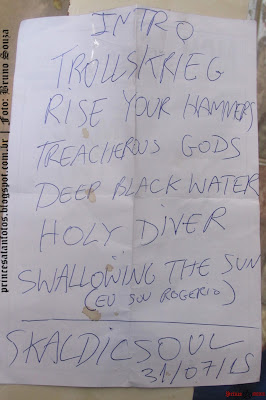 INTRO
TROLLSKRIEG
RISE YOUR HAMMERS
TREACHERUS GODS
DEEP BLACK WATER
HOLY DIVER
SWALLOWING THE SUN
(EU SOU ROGERIO)
SKALDICSOUL
31/07/15
princesaltantofos.blogspot.com.br | Foto: Bruno Souza